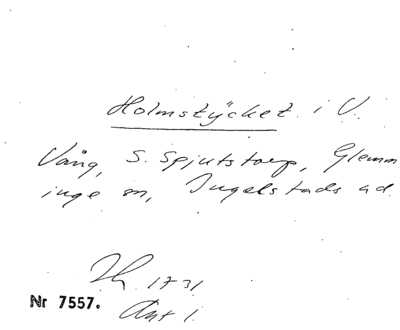 Holmstycket i V.
Vång, S. Spjutstorp, Glemm
inge sn, Ingelstads hd
1731
Nr 7557. Akt 1.